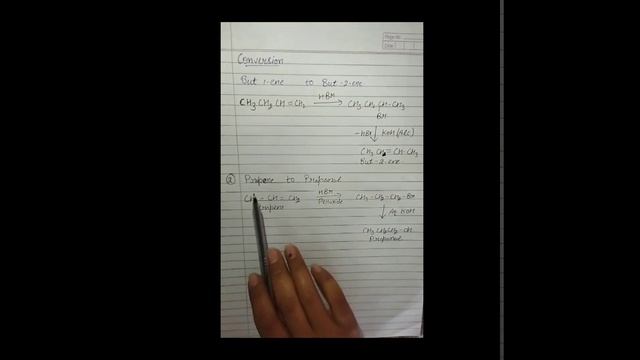 Page No.
Date
Conversion
But 1-ene to But-2-ene
CH3 CH2 CH = CH2 HBr CH3 CH2 CH-CH3
Br
-HBr KOH (Alc)
CH3 CH = CH-CH3
But-2-ene
② Propene to Propanol
CH3 - CH = CH2 HBr Peroxide CH3-CH2-CH2-Br
Propene
Aq KOH
CH3 CH2CH2-OH
Propanol